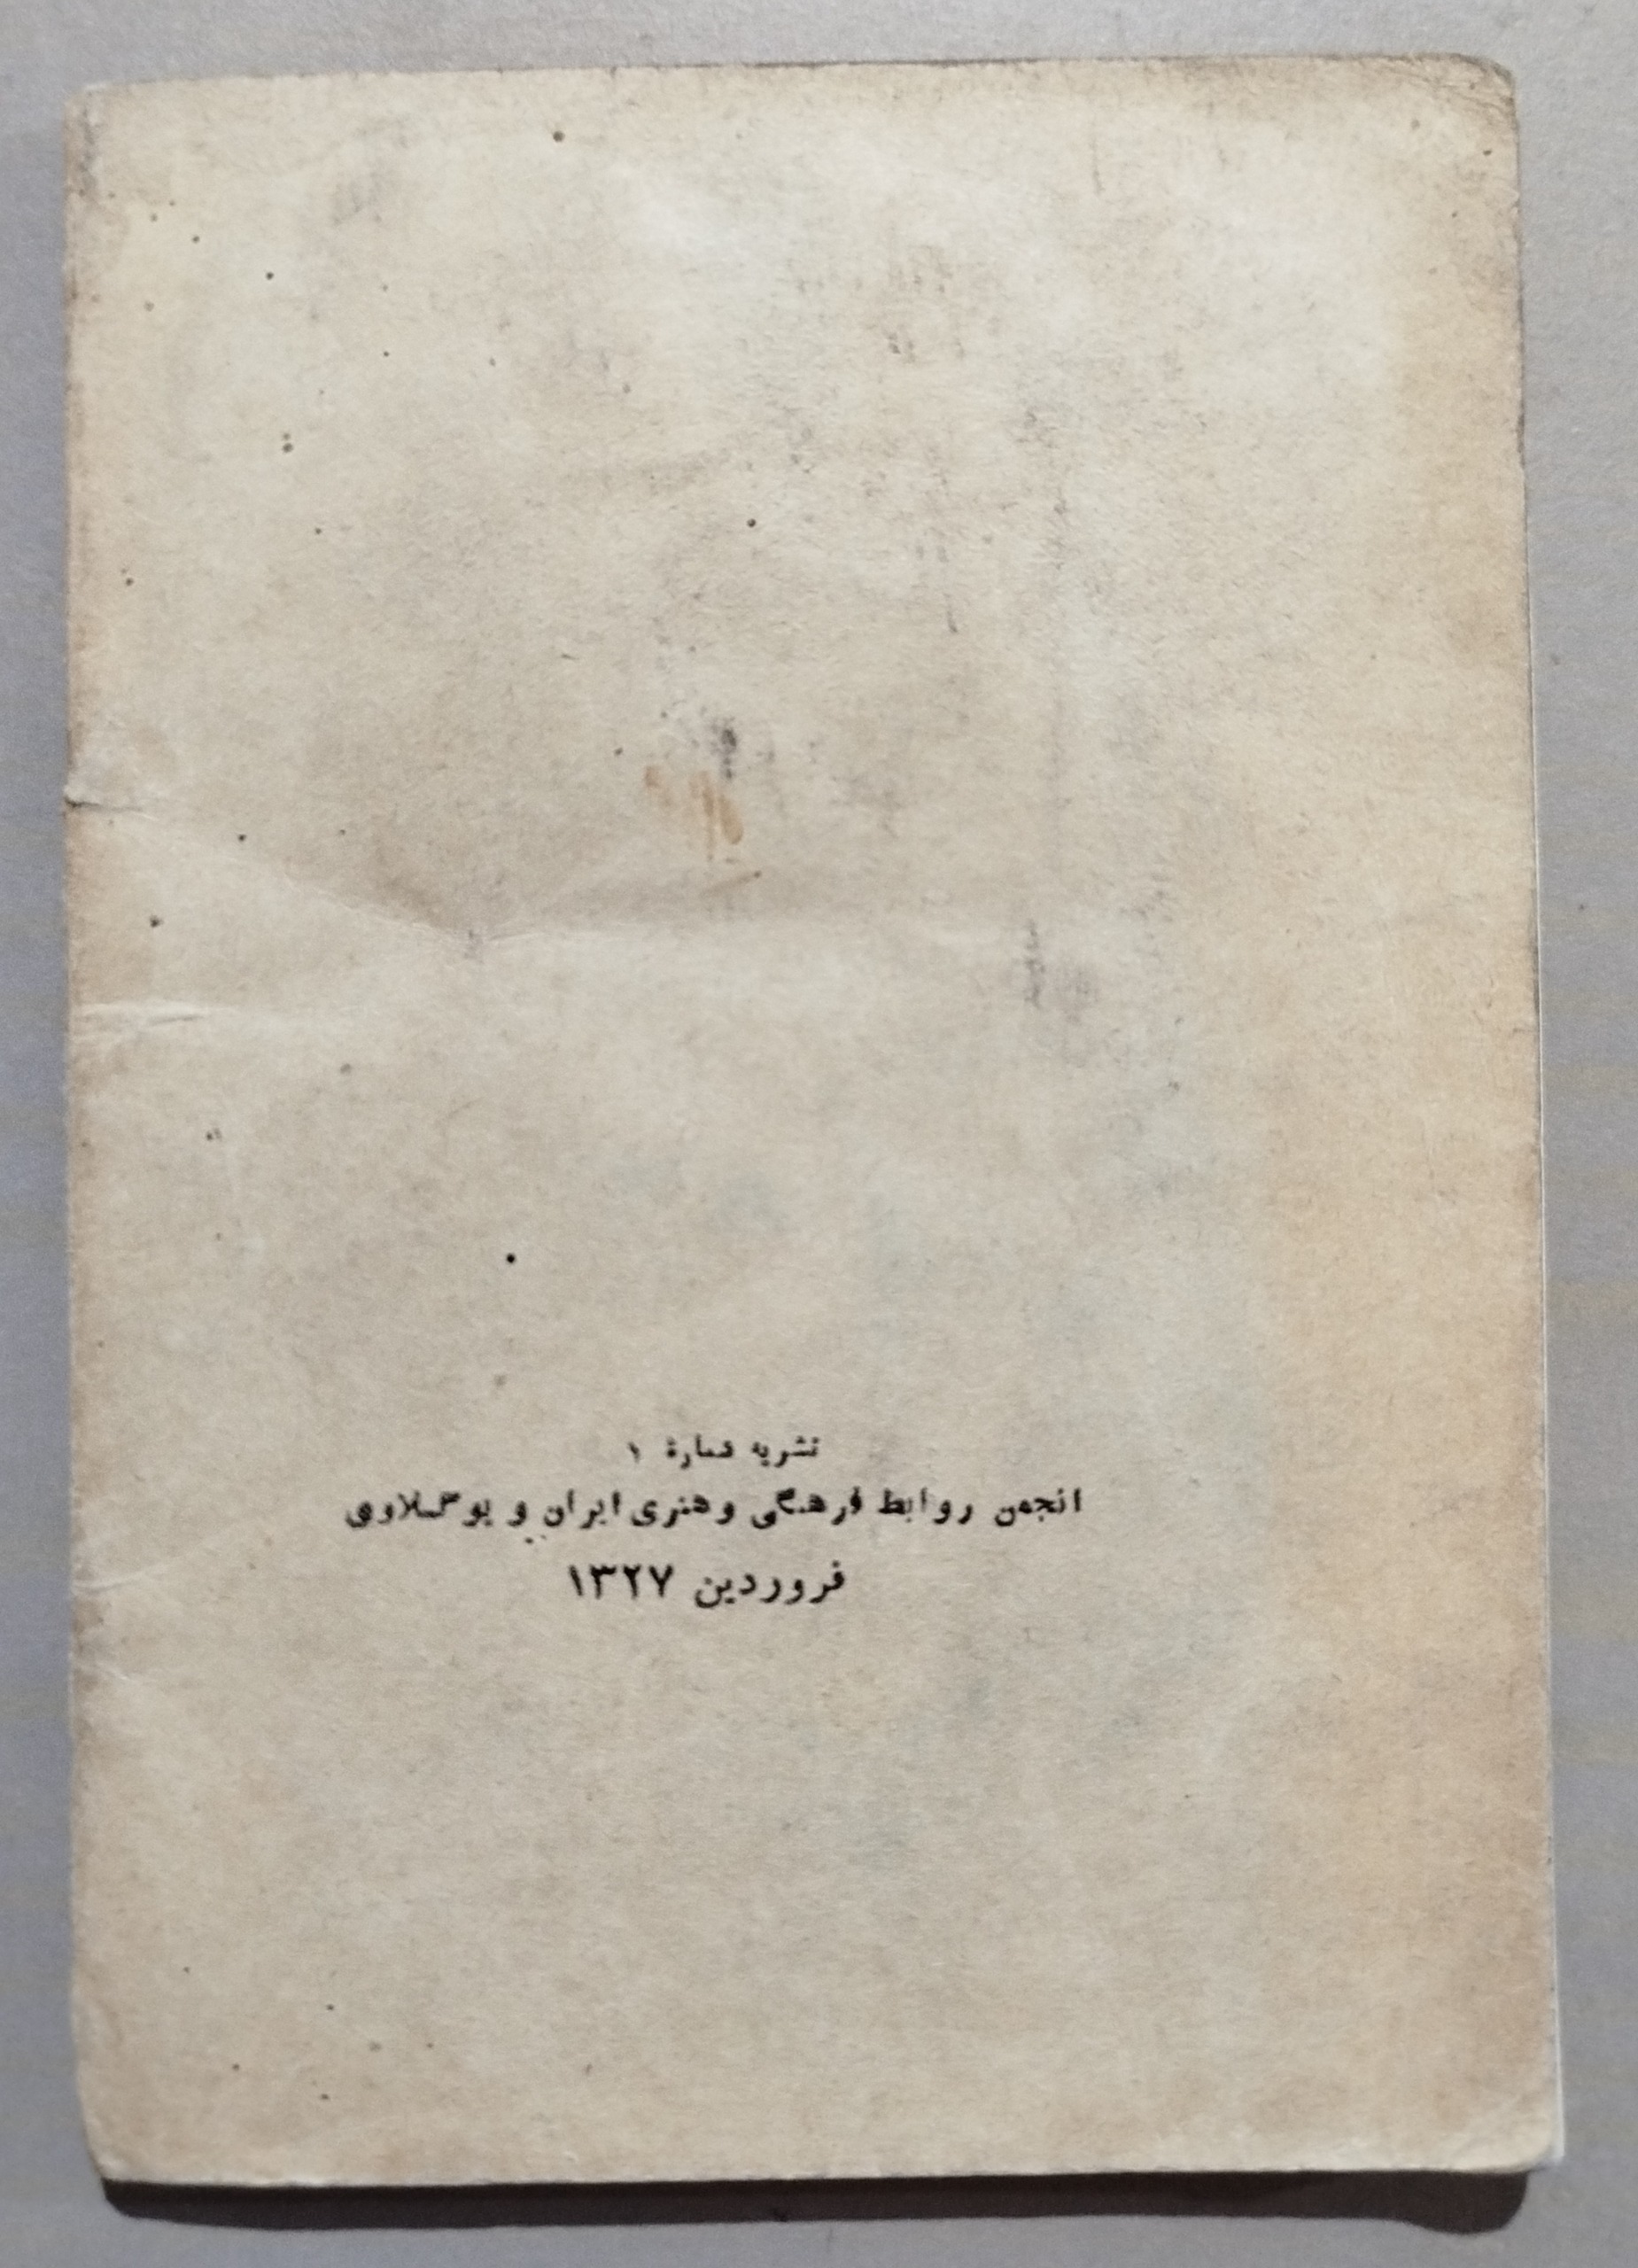 نشریه شمارهٔ ۱
انجمن روابط فرهنگی و هنری ایران و یوگسلاوی
فروردین ۱۳۲۷